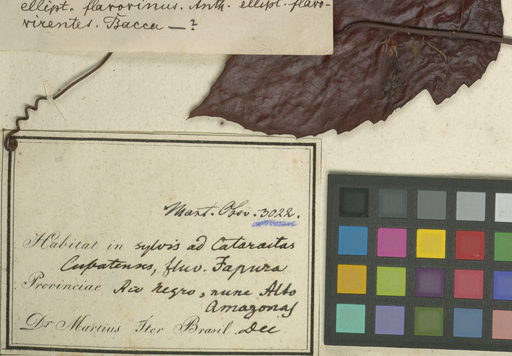 ellipt. flavovirius. Anth. ellipt. flavo-
virentes. Bacca — ?
Mart. Obs. 3022.
Habitat in sylvis ad Cataractas
Cupatenses, fluv. Japura
Provinciae Rio Negro, nunc Alto
Amazonas
Dr. Martius Iter Brasil. Dec